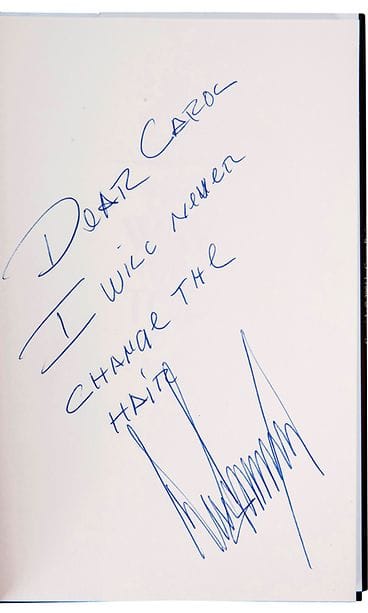 DEAR CAROL
I WILL NEVER
CHANGE THE
HAIR